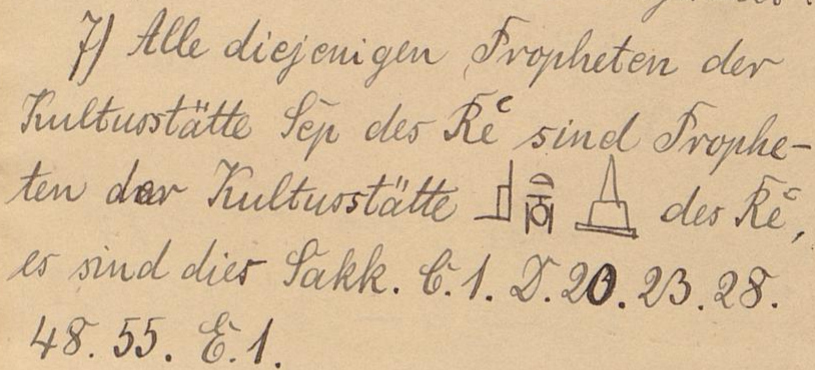 7) Alle diejenigen Propheten der
Kultusstätte Sēp des Reʿ sind Prophe-
ten der Kultusstätte 𓊨 𓉶 des Reʿ,
es sind dies Sakk. C.1. D.20. 23. 28.
48. 55. E.1.